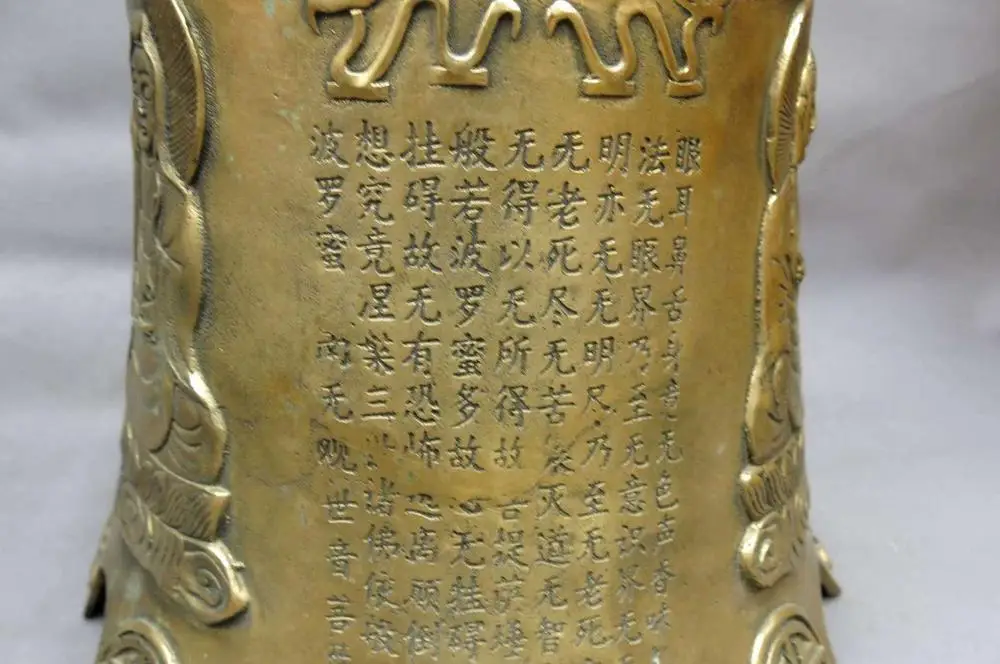 眼耳鼻舌身意无色声香味
法无眼界乃至无意识界无
明亦无无明尽乃至无老死
无老死尽无苦灭道无智
无得以无所得故菩提萨埵
般若波罗蜜多故心无挂碍
挂碍故无有恐怖远离颠倒
想究竟涅槃三诸佛依般
波罗蜜 南无观世音菩